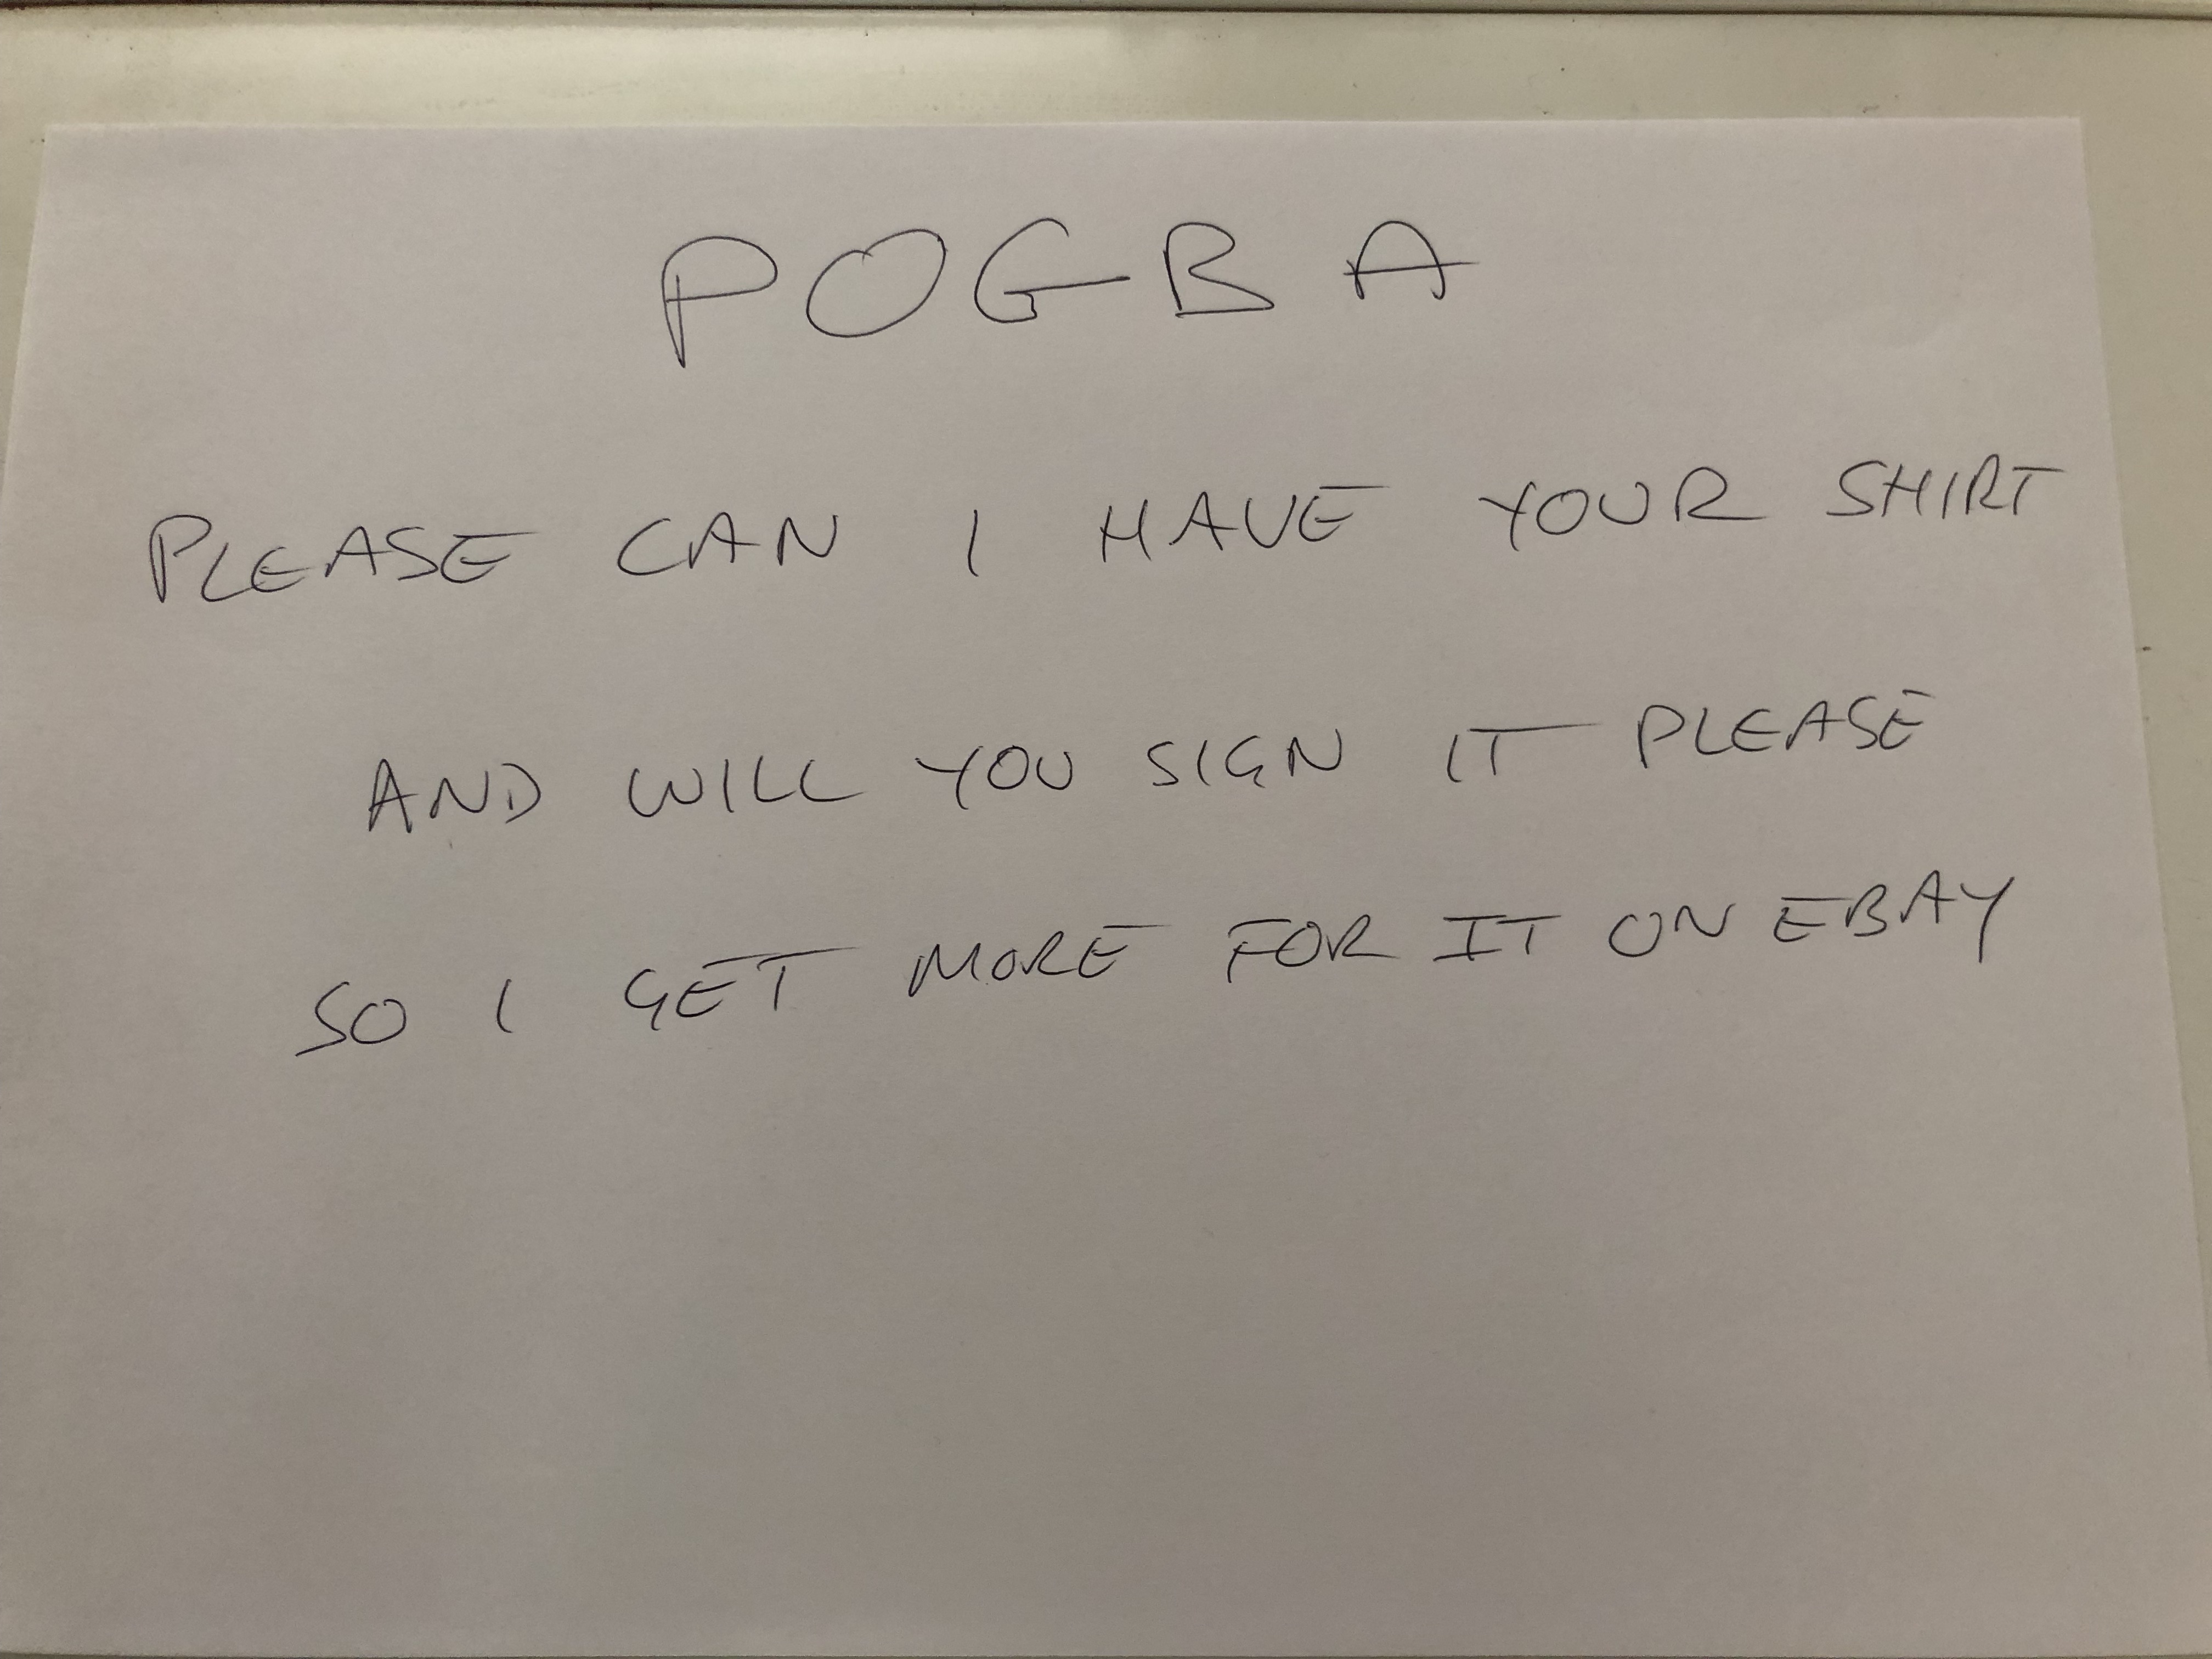 POGBA
PLEASE CAN I HAVE YOUR SHIRT
AND WILL YOU SIGN IT PLEASE
SO I GET MORE FOR IT ON EBAY